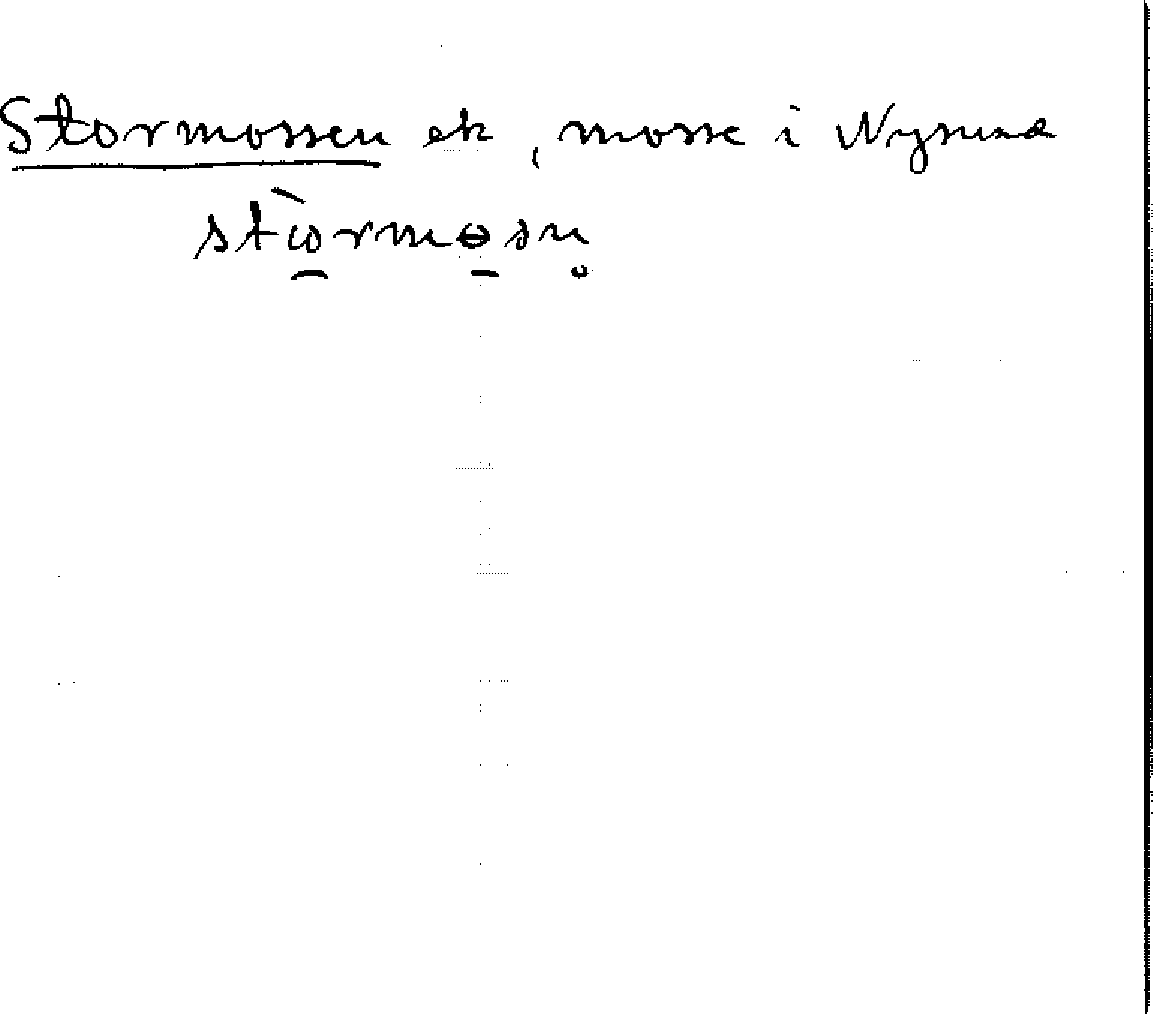 Stormossen ek, mosse i Nysund
stɷ̠̀rmɵ̠sn̥